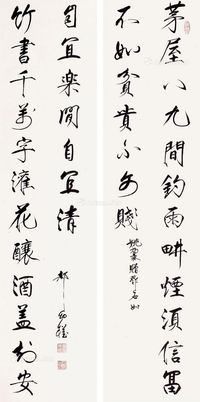 茅屋八九間釣雨畊煙須信富
不如貧貴不如賤
竹書千萬字灌花釀酒益知安
自宜樂閒自宜清